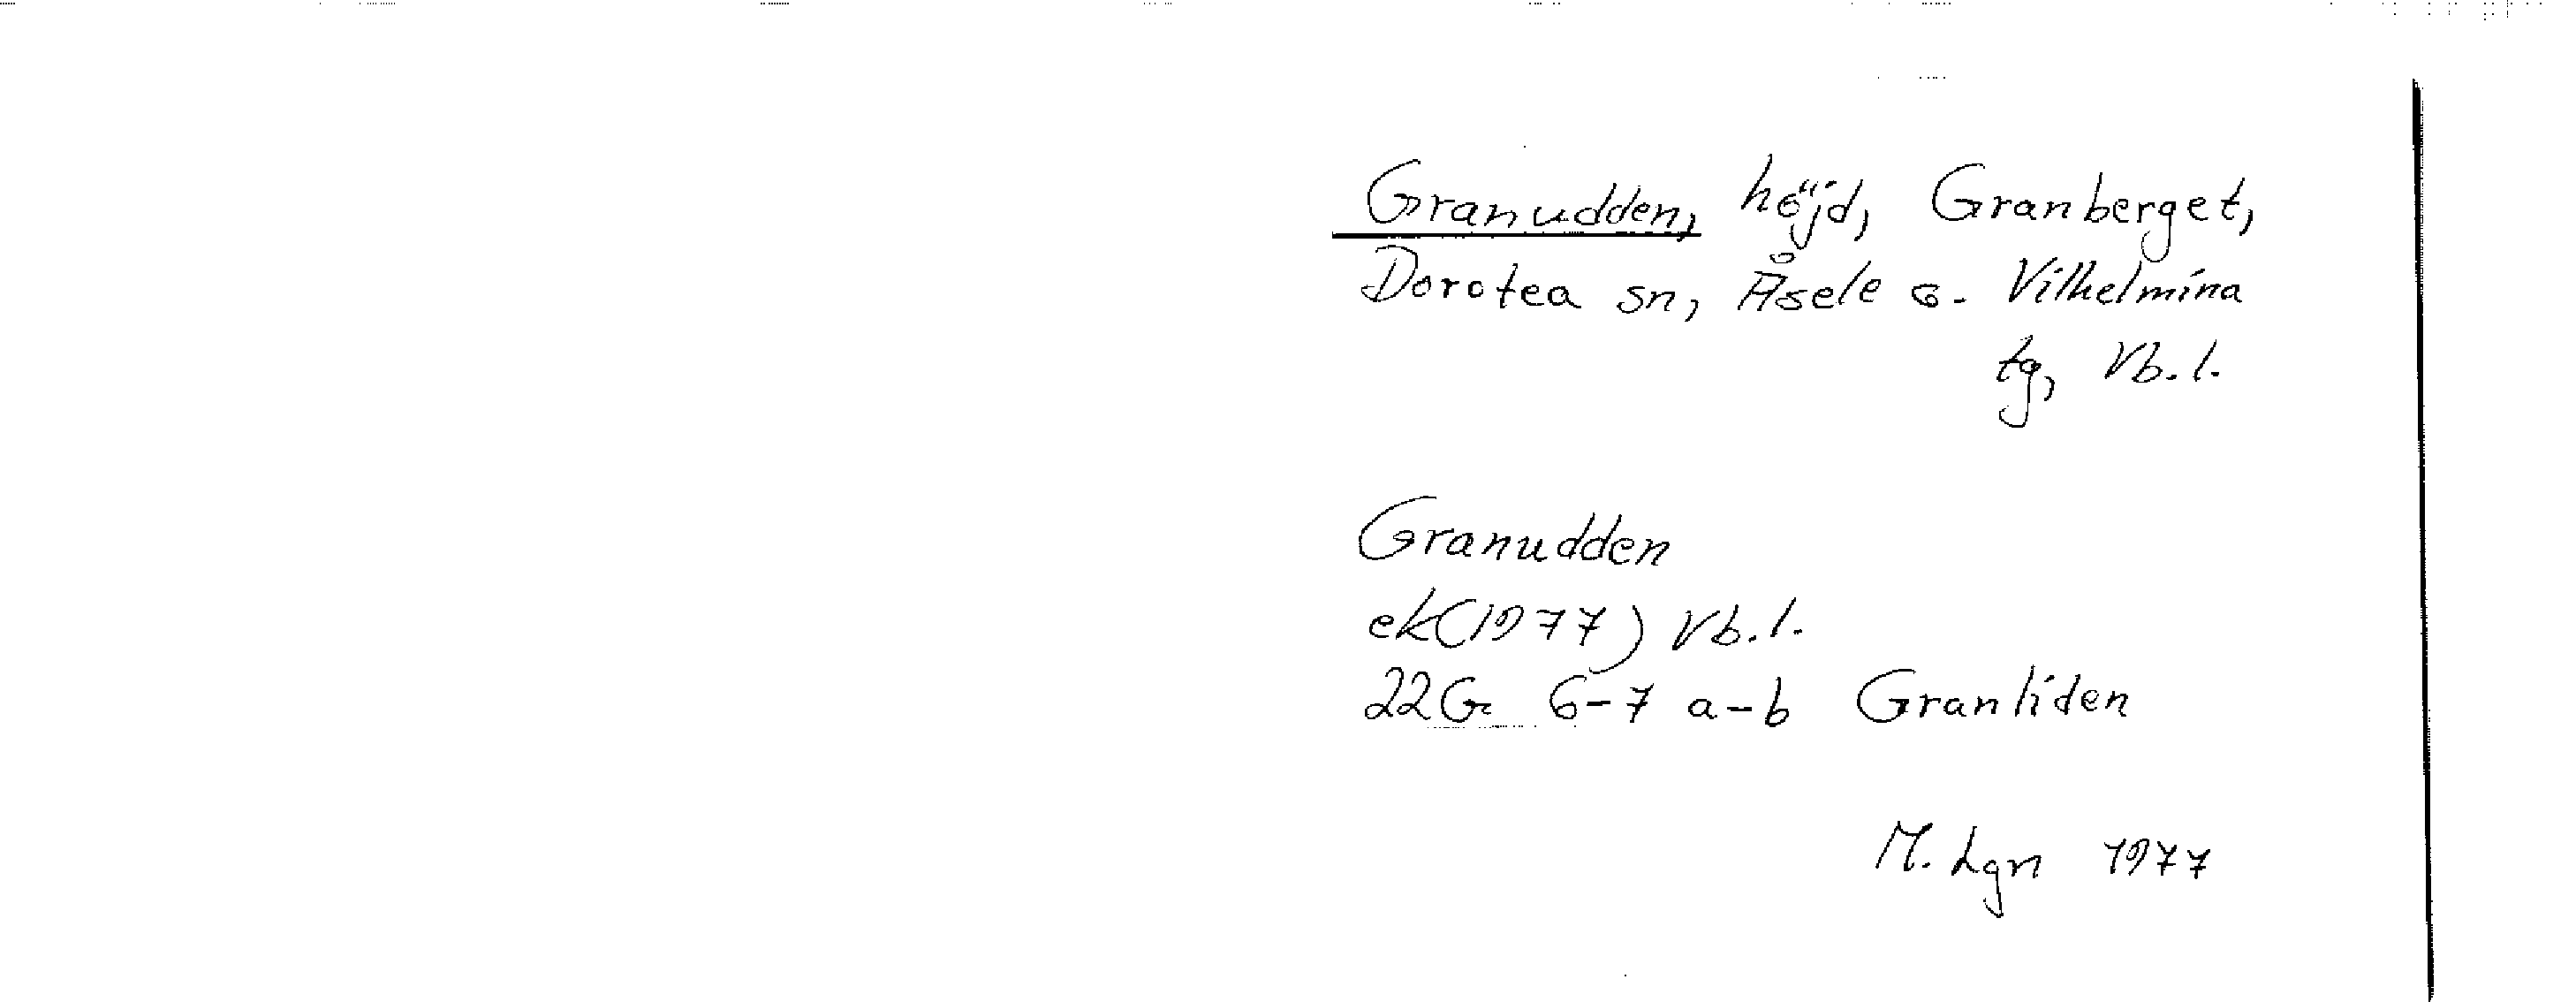 Granudden, höjd, Granberget,
Dorotea sn, Åsele o. Vilhelmina
tg, Vb. l.
Granudden
ek(1977) Vb. l.
22G 6-7 a-b Granliden
M. Lgn 1977